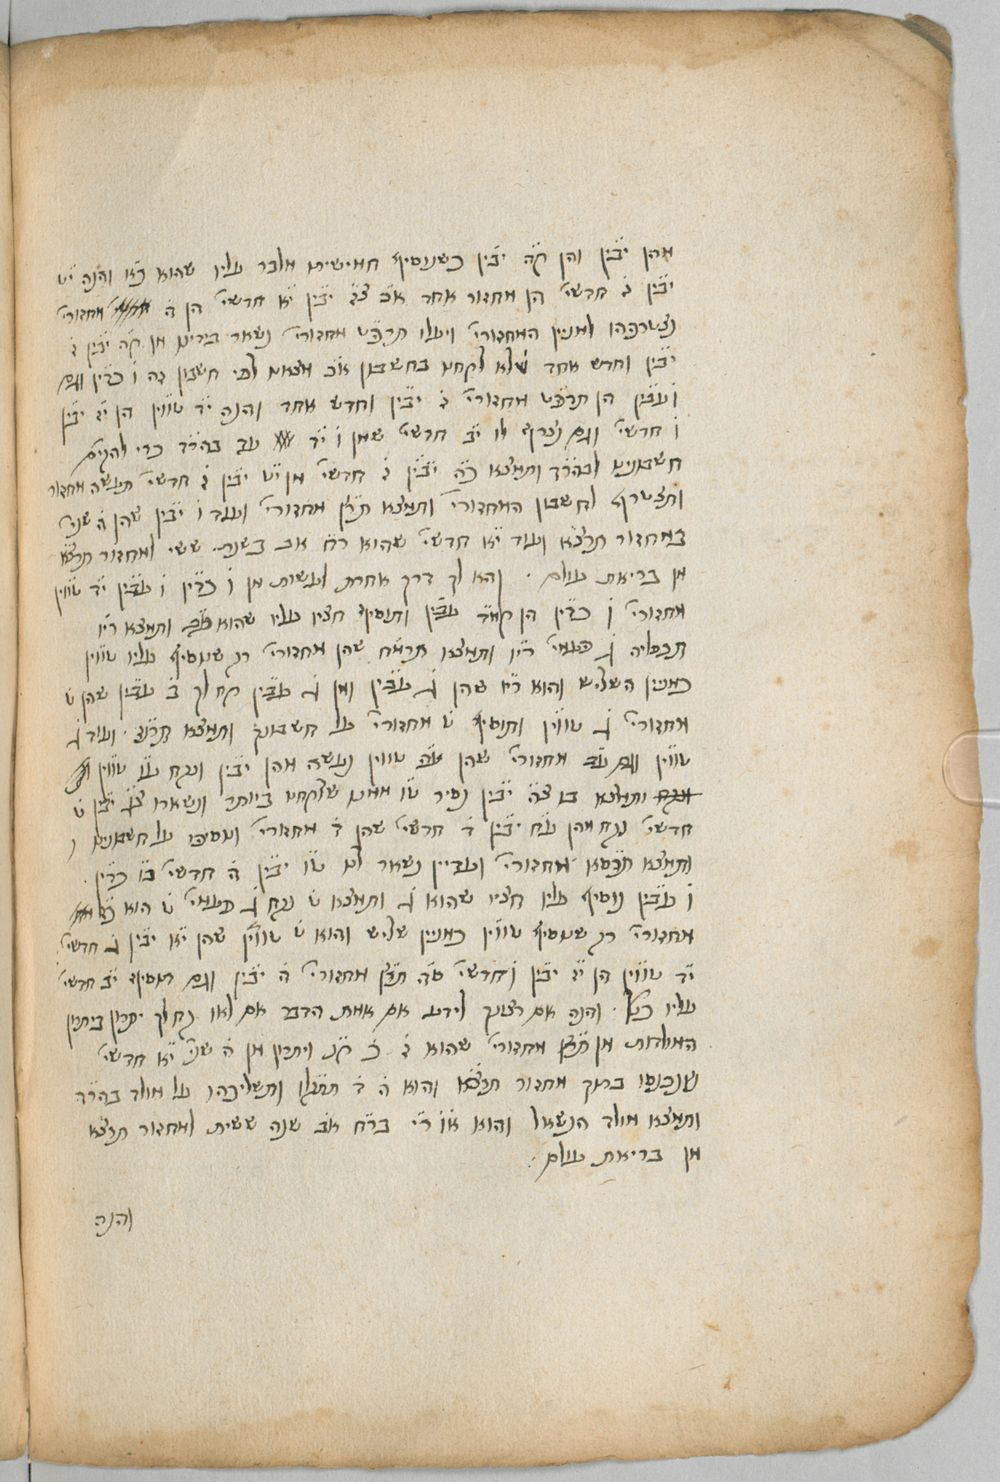 מהן יב̈ין והן ק̈ה יב̈ין כשנוסיף חמישית מלבר עליו שהוא כ̈א והנה י̈ט
יב̈ין ג̇ חדשי' הן מחזור אחד א̈כ צ̈ג יב̈ין י̈א חדשי' הן ה̇ מחזורי'
נצטרפהו למניין המחזורי' ויעלו תרפ̈ט מחזורי' נשאר בידינו מן ק̈ה יב̈ין ג̇
יב̈ין וחדש אחד שלא לקחנו בחשבון א̈כ מצאנו לפי חשבון זה ו̇ כ̈דין וגם
ו̇ ע̈בין הן תרפ̈ט מחזורי' ג̇ יב̈ין וחדש אחד והנה י̈ד טו̈וין הן י̈ג יב̈ין
ו̇ חדשי' וגם נצרף לו י̈ב חדשי' שמן ו̇ י̈ד עב בה̈רד כדי להקים
חשבונינו לבה̈רד ותמצא כ̈ה יב̈ין ג̇ חדשי' מן י̈ט יב̈ין ג̇ חדשי' תעשה מחזור
ותצטרף לחשבון המחזורי' ותמצא ת̈רץ מחזורי' ועוד ו̇ יב̈ין שהן ה̇ שני'
במחזור תרצ̈א ועוד י̈א חדשי' שהוא ר̈ח אב בשנת ששי למחזור תרצ̈א
מן בריאת עולם . והא לך דרך אחרת לעשות מן ו̇ כ̈דין ו̇ ע̈בין י̈ד טו̈וין
מחזורי' ו̇ כ̈דין הן קמ̈ד ע̈בין ותוסיף חציו עליו שהוא ע̈ב ותמצא רי̈ו
תכפליה ג̇ פעמי' רי̈ו ותמצאו תרמ̈ח שהן מחזורי' רק שנוסיף עליו טו̈וין
כמניין השליש והוא רי̈ו שהן ג̇ ע̈בין ומן ג̇ ע̈בין קח לך ב̇ ע̈בין שהן ט̇
מחזורי' ג̇ טו̈וין ותוסיף ט̇ מחזורי' על חשבונך ותמצא תרנ̈ז . ועוד ג̇
טו̈וין וגם ע̈ב מחזורי' שהן ע̈ב טווין נעשה מהן יב̈ין ונקח ע̈ו טו̈וין
ותמצא בו צ̈ה יב̈ין נסיר ט̈ו ממנו שלקחנו ביותר ונשארו
חדשי' נקח מהן ע̈ח יב̈ין ד̇ חדשי' שהן ד̇ מחזורי' ונוסיפו על חשבונינו
ותמצא תרס̈א מחזורי' ועדיין נשאר לנו ט̈ו יב̈ין ה̇ חדשי' בו̇ כ̈דין .
ו̇ ע̈בין נוסיף עליו חציו שהוא ג̇ ותמצאו ט̇ נקח ג̇ פעמי' ט̇ הוא כ̈ז
מחזורי' רק שנוסיף טו̈וין כמניין שליש והוא ט̇ טו̈וין שהן י̈א יב̈ין ג̇ חדשי'
י̈ד טו̈וין הן י̈ג יב̈ין ו̇ חדשי' ס̈ה ת̈רץ מחזורי' ה̇ יב̈ין וגם תוסיף י̈ב חדשי'
עליו כנ̈ל . והנה אם רצונך לידע אם אמת הדבר אם לאו קח לך יתרון ביתרון
המולדות מן ת̈רץ מחזורי' שהוא ג̇ כ̇ ק̈נ ויתרון מן ה̇ שני' י̈א חדשי'
שנכנסו בתוך מחזור תרצ̈א והוא ה̇ ד̇ תתנ̈לו ותשליכהו על מולד בה̈רד
ותמצא מולד הנשאל והוא או̈ ר̈י בר̈ח א̈ב שנה ששית למחזור תרצ̈א
מן בריאת עולם .
והנה